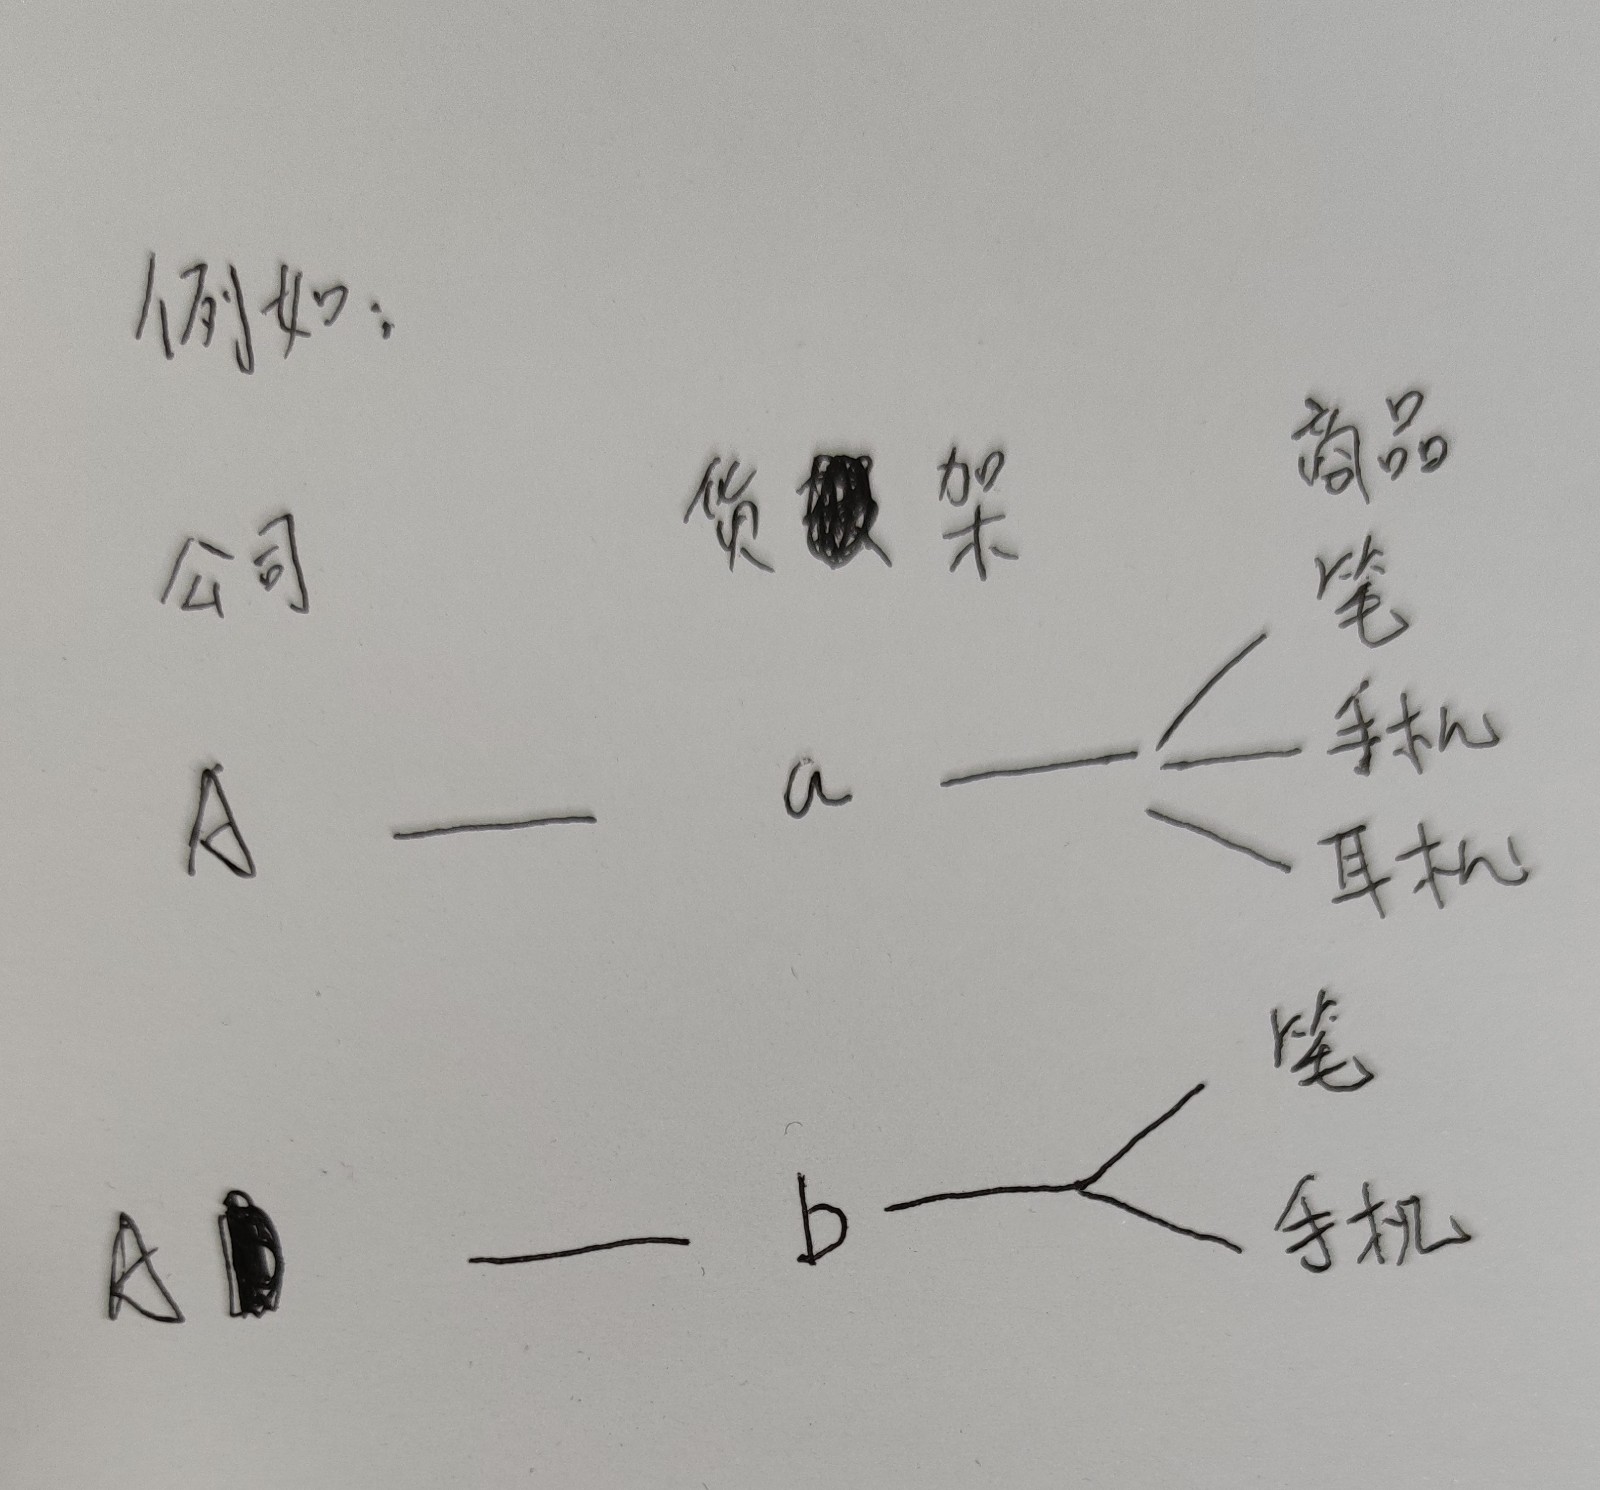 例如:
公司 货架 商品
笔
A — a — 手机
耳机
笔
A — b — 手机